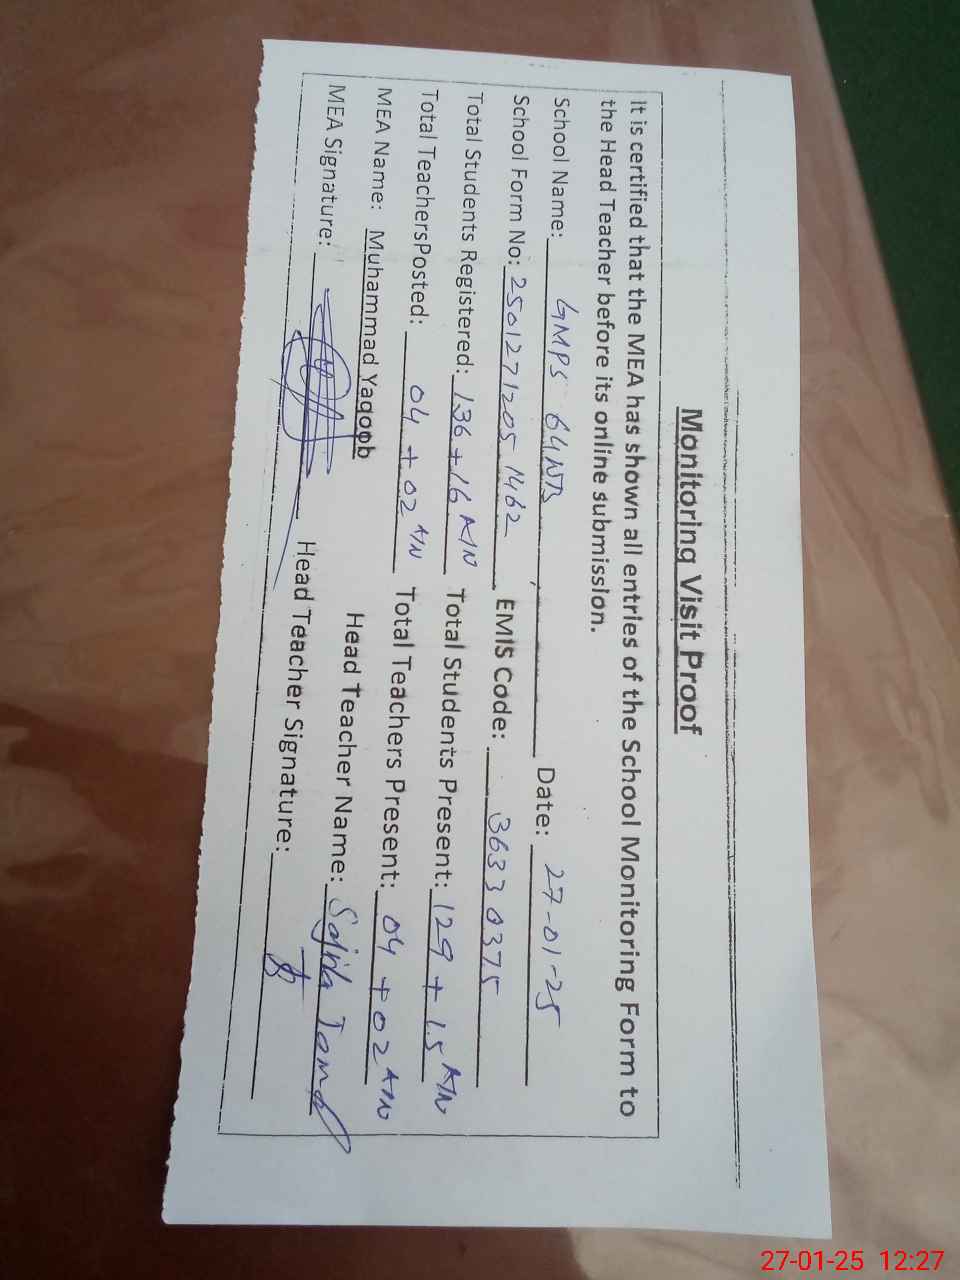 Monitoring Visit Proof
It is certified that the MEA has shown all entries of the School Monitoring Form to
the Head Teacher before its online submission.
School Name: GMPS 64NB Date: 27-01-25
School Form No: 25012712051462 EMIS Code: 36330375
Total Students Registered: 136+16 A/N Total Students Present: 129 + 15 A/N
Total TeachersPosted: 04 + 02 A/N Total Teachers Present: 04 + 02 A/N
MEA Name: Muhammad Yaqoob Head Teacher Name: Sajida
MEA Signature: Head Teacher Signature:
27-01-25 12:27